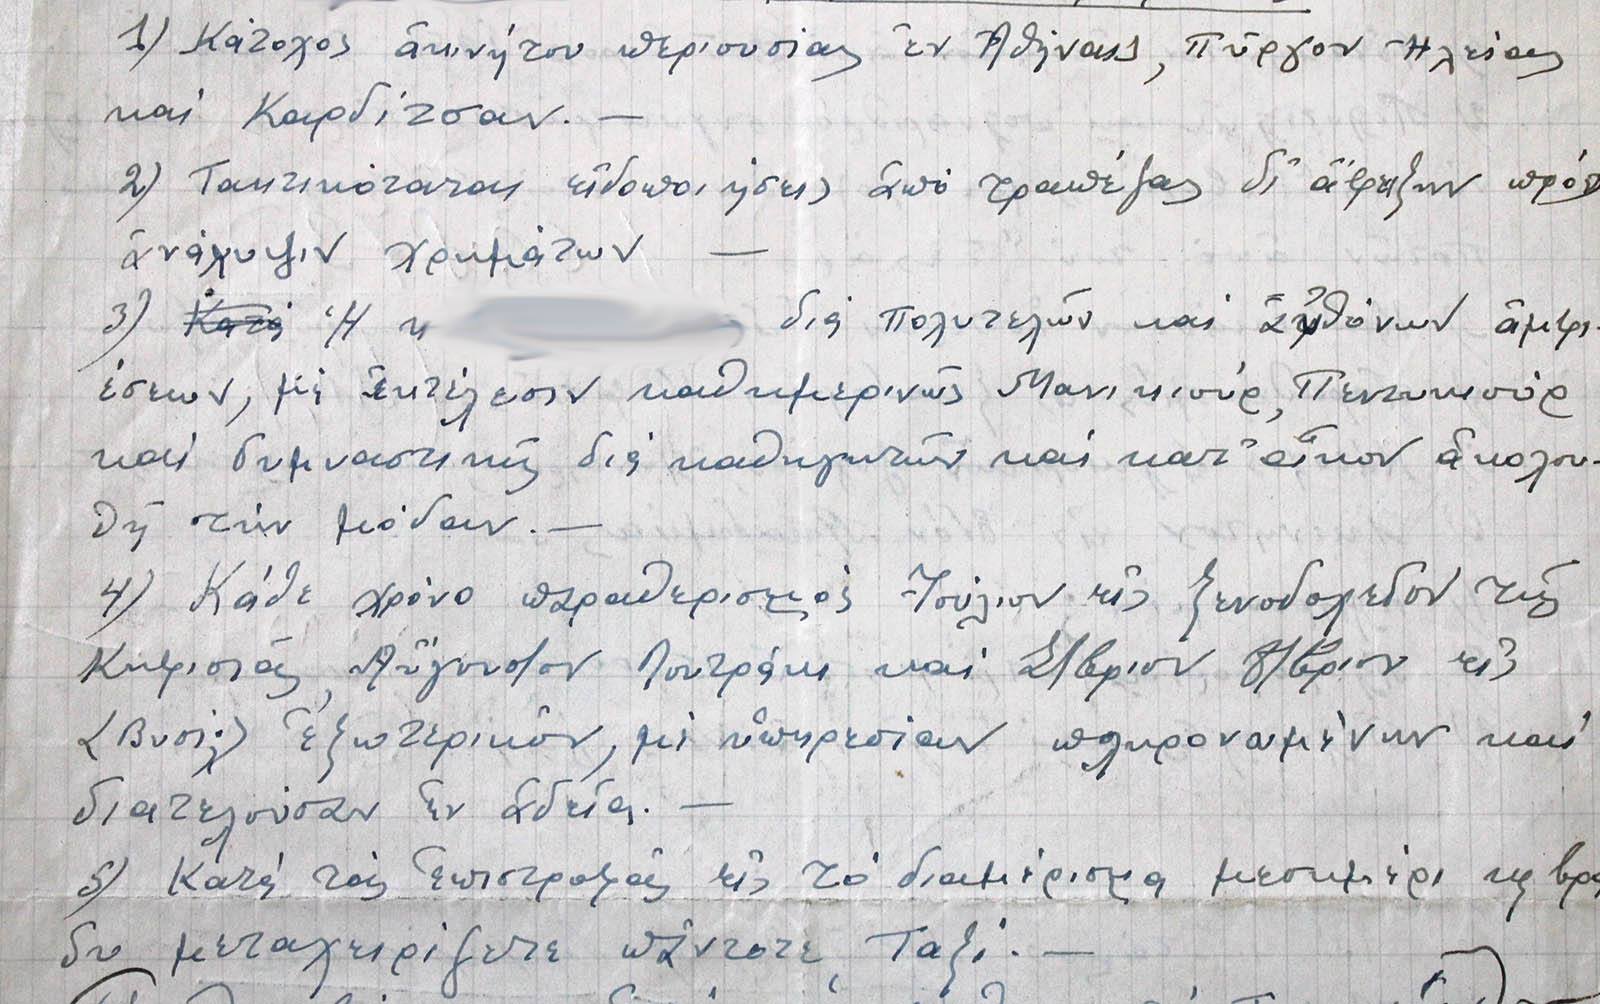 1) Κάτοχος ἀκινήτου περιουσίας ἐν Ἀθήναις, Πύργον Ἠλείας
καί Καρδίτσαν. —
2) Τακτικόταται εἰδοποιήσεις ἀπό τραπέζας δι' ἄφιξιν πρός
ἀνάληψιν χρημάτων —
3) Κατά Ἡ κ διά πολυτελῶν καί ἀφθόνων ἀμφι-
έσεων, μέ ἐκτέλεσιν καθημερινῶς Μανικιούρ, Πεντικιούρ
καί γυμναστικῆς διά καθηγητῶν καί κατ' οἶκον ἀκολου-
θῆ τήν μόδαν. —
4) Κάθε χρόνο παραθερισμός Ἰούλιον εἰς ξενοδοχεῖον τῆς
Κηφισιᾶς, Αὔγουστον Λουτράκι καί Σ/βριον 8/βριον εἰς
Ἐξωτερικόν, μέ ὑπηρεσίαν πληρονομένην καί
διατελοῦσαν ἐν ἀδείᾳ. —
5) Κατά τάς ἐπιστροφάς εἰς τό διαμέρισμα μεσημέρι κ βρά
δυ μεταχειρίζετε πάντοτε Ταξί. —